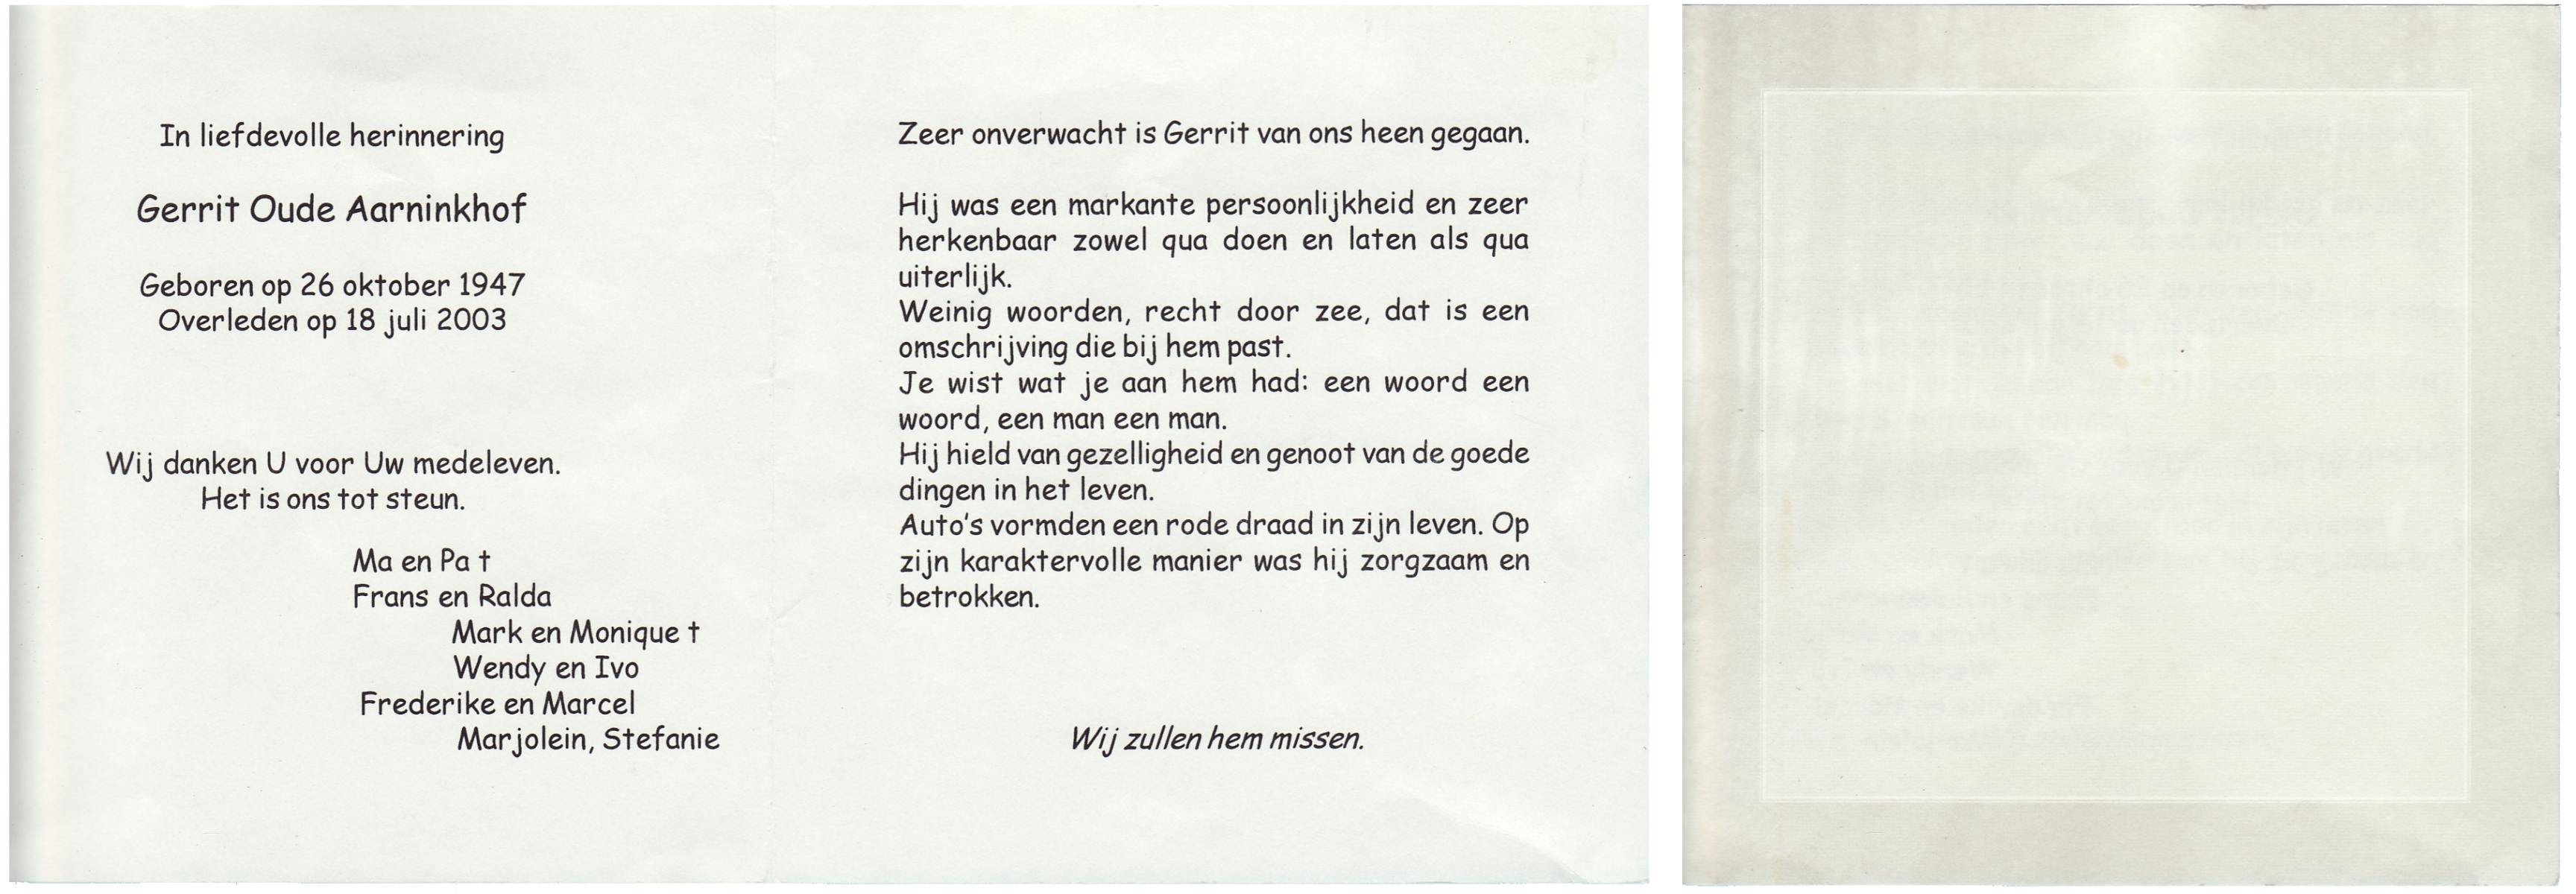 In liefdevolle herinnering
Gerrit Oude Aarninkhof
Geboren op 26 oktober 1947
Overleden op 18 juli 2003
Wij danken U voor Uw medeleven.
Het is ons tot steun.
Ma en Pa †
Frans en Ralda
Mark en Monique †
Wendy en Ivo
Frederike en Marcel
Marjolein, Stefanie
Zeer onverwacht is Gerrit van ons heen gegaan.
Hij was een markante persoonlijkheid en zeer
herkenbaar zowel qua doen en laten als qua
uiterlijk.
Weinig woorden, recht door zee, dat is een
omschrijving die bij hem past.
Je wist wat je aan hem had: een woord een
woord, een man een man.
Hij hield van gezelligheid en genoot van de goede
dingen in het leven.
Auto's vormden een rode draad in zijn leven. Op
zijn karaktervolle manier was hij zorgzaam en
betrokken.
Wij zullen hem missen.